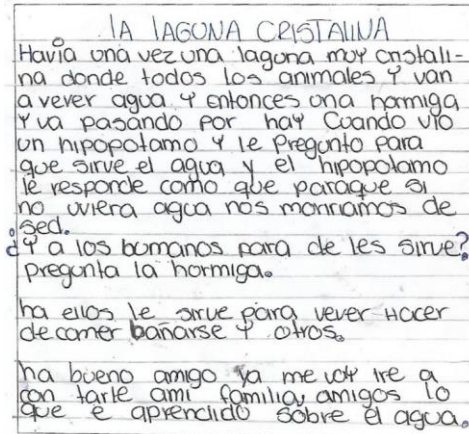 lA lAGUNA CRISTALINA
Havia una vez una laguna muy cristali-
na donde todos los animales Y van
a vever agua Y entonces una hormiga
Y va pasando por hay Cuando vio
un hipopotamo Y le Pregunto para
que sirve el agua y el hipopotamo
le responde como que paraque si
no uviera agua nos moririamos de
sed.
¿Y a los bumanos para de les sirve?
pregunta la hormiga.
ha ellos le sirve para vever Hacer
de comer bañarse Y otros.
ha bueno amigo ya me voy ire a
con tarle ami familia, amigos lo
que e aprendido sobre el agua.